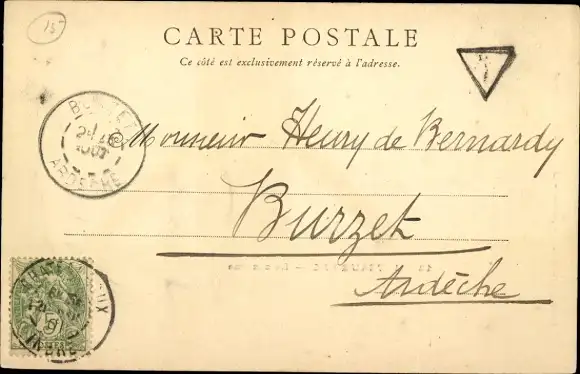 15
CARTE POSTALE
Ce côté est exclusivement réservé à l'adresse.
T
BURZET
AOUT
ARDECHE
Monsieur Henry de Bernardy
Burzet
Ardèche
INDRE